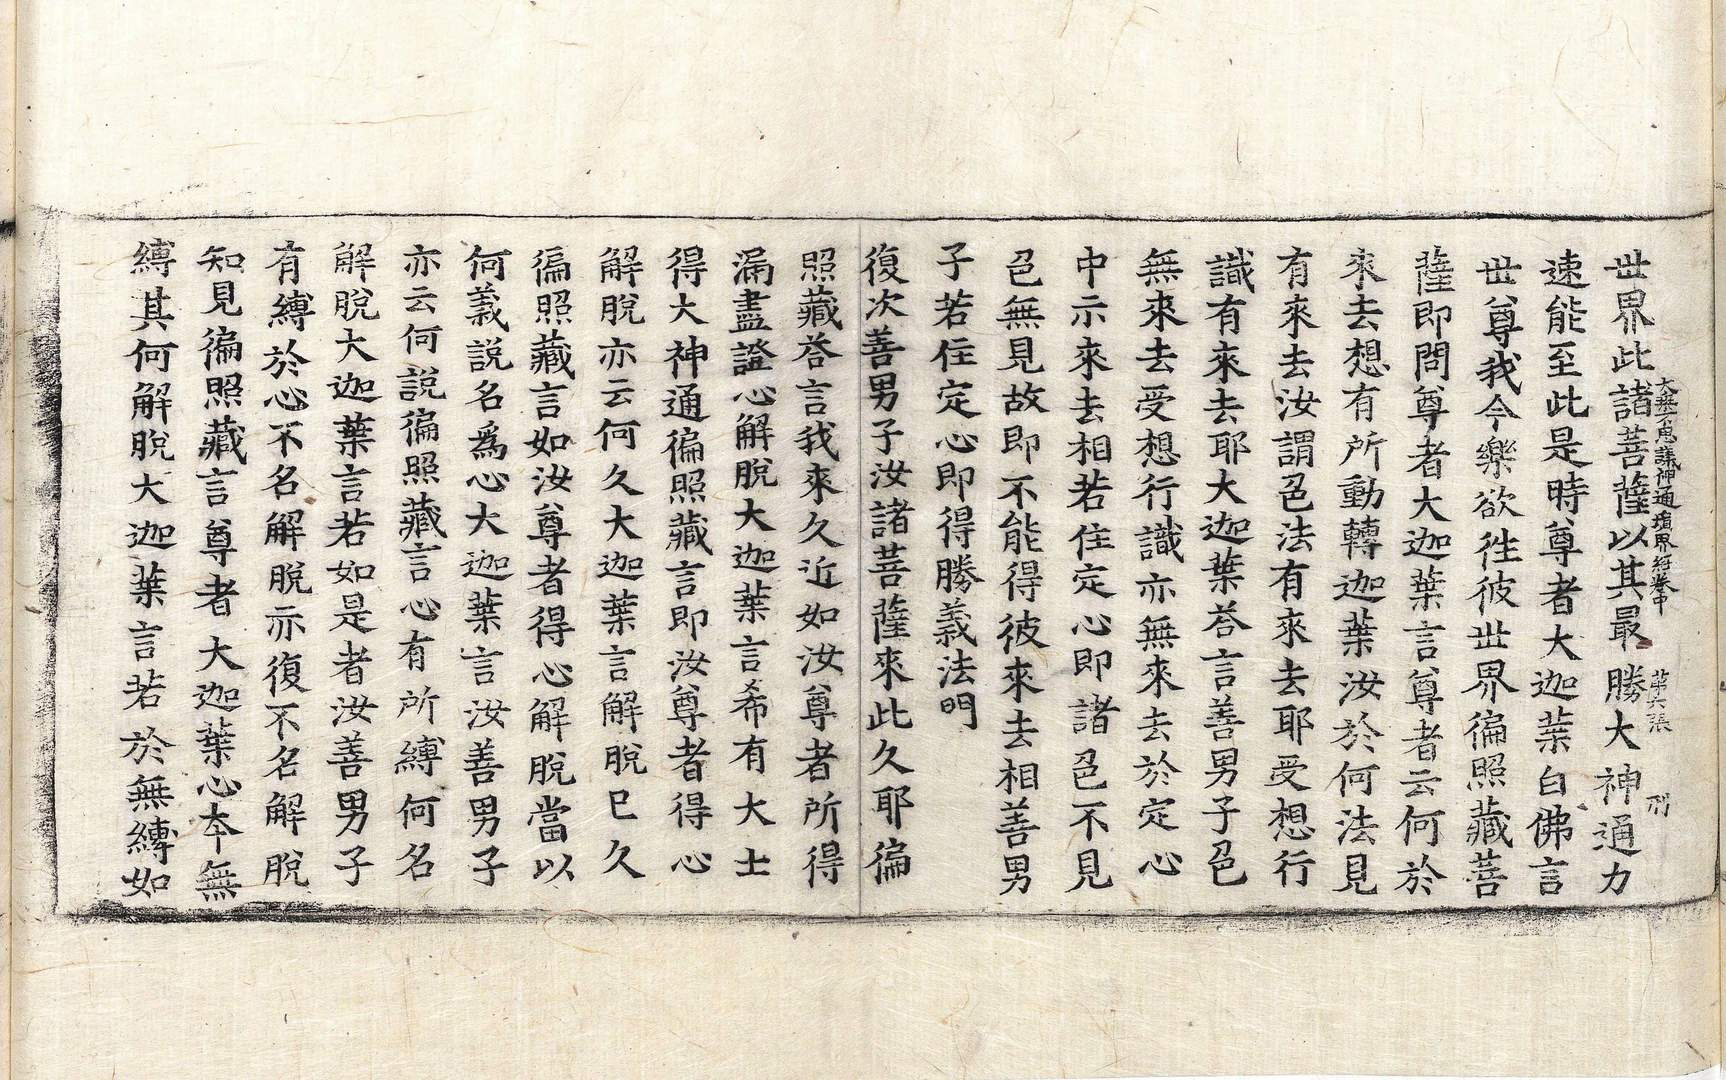 大乘不思議神通境界經卷中 第六張 刑
世界此諸菩薩以其最勝大神通力
速能至此是時尊者大迦葉白佛言
世尊我今樂欲徃彼世界徧照藏菩
薩即問尊者大迦葉言尊者云何於
來去想有所動轉迦葉汝於何法見
有來去汝謂色法有來去耶受想行
識有來去耶大迦葉荅言善男子色
無來去受想行識亦無來去於定心
中示來去相若住定心即諸色不見
色無見故即不能得彼來去相善男
子若住定心即得勝義法門
復次善男子汝諸菩薩來此久耶徧
照藏荅言我來久近如汝尊者所得
漏盡證心解脫大迦葉言希有大士
得大神通徧照藏言即汝尊者得心
解脫亦云何久大迦葉言解脫已久
徧照藏言如汝尊者得心解脫當以
何義說名爲心大迦葉言汝善男子
亦云何說徧照藏言心有所縛何名
解脫大迦葉言若如是者汝善男子
有縛於心不名解脫亦復不名解脫
知見徧照藏言尊者大迦葉心本無
縛其何解脫大迦葉言若於無縛如